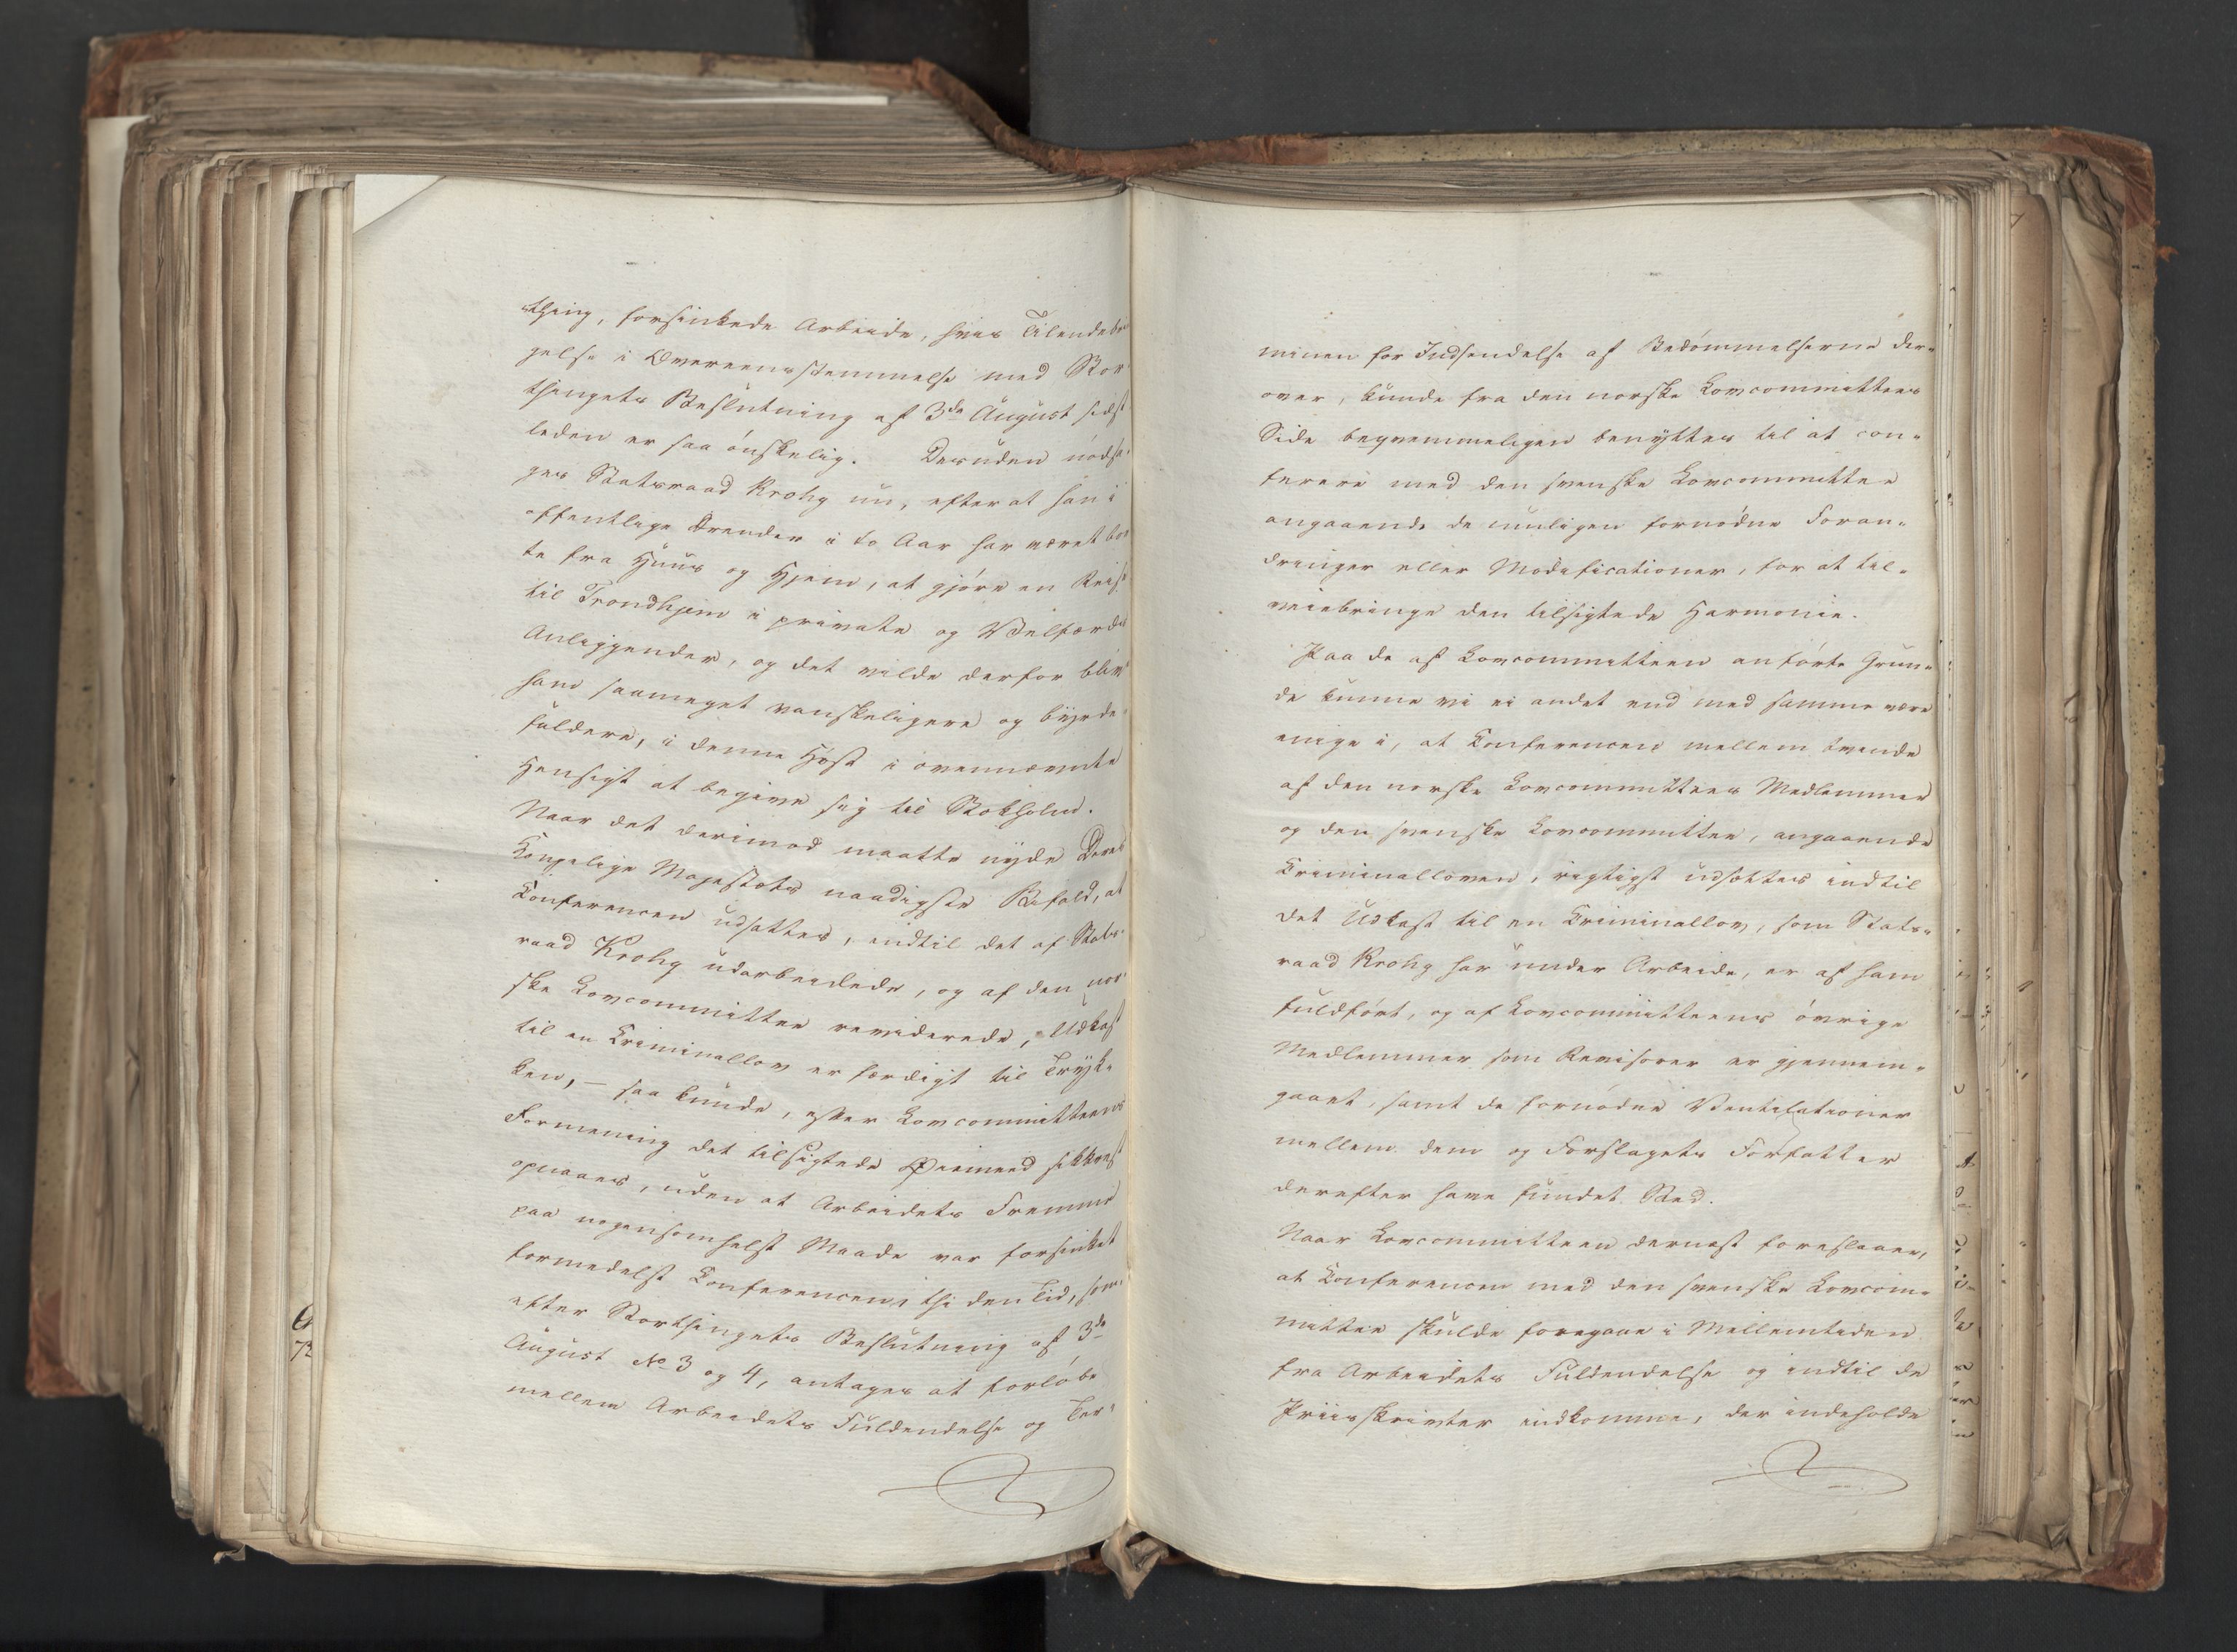 thing, forsinkede Arbeide, hvis Tilendebrin
gelse i Overeensstemmelse med Stor
thingets Beslutning af 3de August sidst
leden er saa ønskelig. Desuden nødsa-
ges Statsraad Krohg nu, efterat han i
offentlige Ærender i to Aar har været bor
te fra Huus og Hjem, at gjøre en Reise
til Trondhjem i private og Velfærds
Anliggender, og det vilde derfor blive
ham saameget vanskeligere og byrde-
fuldere, i denne Høst i ovennævnte
Hensigt at begive sig til Stokholm.
Naar det derimod maatte nyde Deres
Kongelige Majestæts naadigste Bifald, at
Conferencen udsættes, indtil det af Stats-
raad Krohg udarbeidede, og af den nor-
ske Lovcommittee reviderede, Udkast
til en Criminallov er færdigt til Tryk-
ken, – saa kunde, efter Lovcommitteens
Formening det tilsigtede Øiemeed sikkrest
opnaaes, uden at Arbeidets Fremme
paa nogensomhelst Maade var forsinket
formedelst Conferencen; thi den Tid, som,
efter Storthingets Beslutning af 3de
August No 3 og 4, antages at forløbe
mellem Arbeidets Fuldendelse og Ter-
minen for Indsendelse af Bedømmelserne der-
over, kunde fra den norske Lovcommittees
Side beqvemmeligen benyttes til at con-
ferere med den svenske Lovcommittee
angaaende de muligen fornødne Foran-
dringer eller Modificationer, for at til-
veiebringe den tilsigtede Harmonie.
Paa de af Lovcommitteen anførte Grun-
de kunne vi ei andet end med samme være
enige i, at Conferencen mellem tvende
af den norske Lovcommittees Medlemmer
og den svenske Lovcommittee, angaaende
Criminalloven, rigtigst udsættes indtil
det Udkast til en Criminallov, som Stats-
raad Krohg har under Arbeide, er af ham
fuldført, og af Lovcommitteens øvrige
Medlemmer som Revisorer er gjennem-
gaaet, samt de fornødne Ventilationer
mellem dem og Forslagets Forfatter
derefter have fundet Sted.
Naar Lovcommitteen dernæst foreslaaer,
at Conferencen med den svenske Lovcom-
mittee skulde foregaae i Mellemtiden
fra Arbeidets Fuldendelse og indtil de
Priisskrivter indkomme, der indeholde